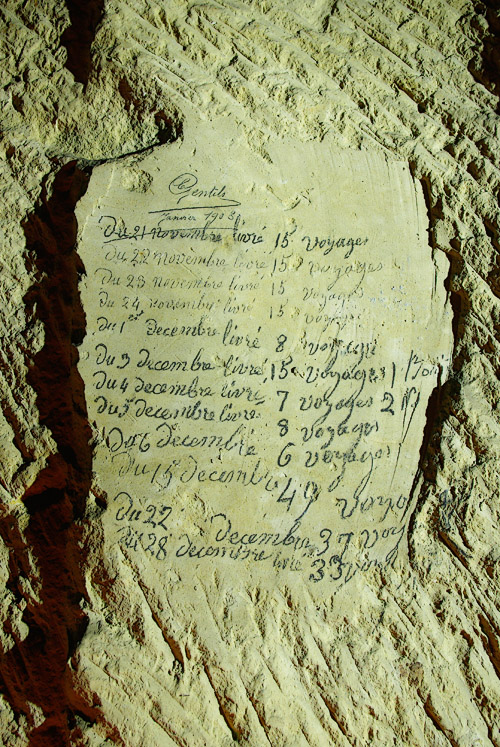 Gentil
Janvier 1903
Du 21 novembre livré 15 voyages
du 22 novembre livré 15 voyages
du 23 novembre livré 15 voyages
du 24 novembre livré 15 voyages
du 1er decembre livré 8 voyages
du 3 decembre livré 15 voyages 1
du 4 decembre livré 7 voyages 2
du 5 decembre livré 8 voyages
du 6 décembre 6 voyages
du 15 décembre 49 voya
du 22 decembre 37 voy
du 28 decembre livré 33 voy